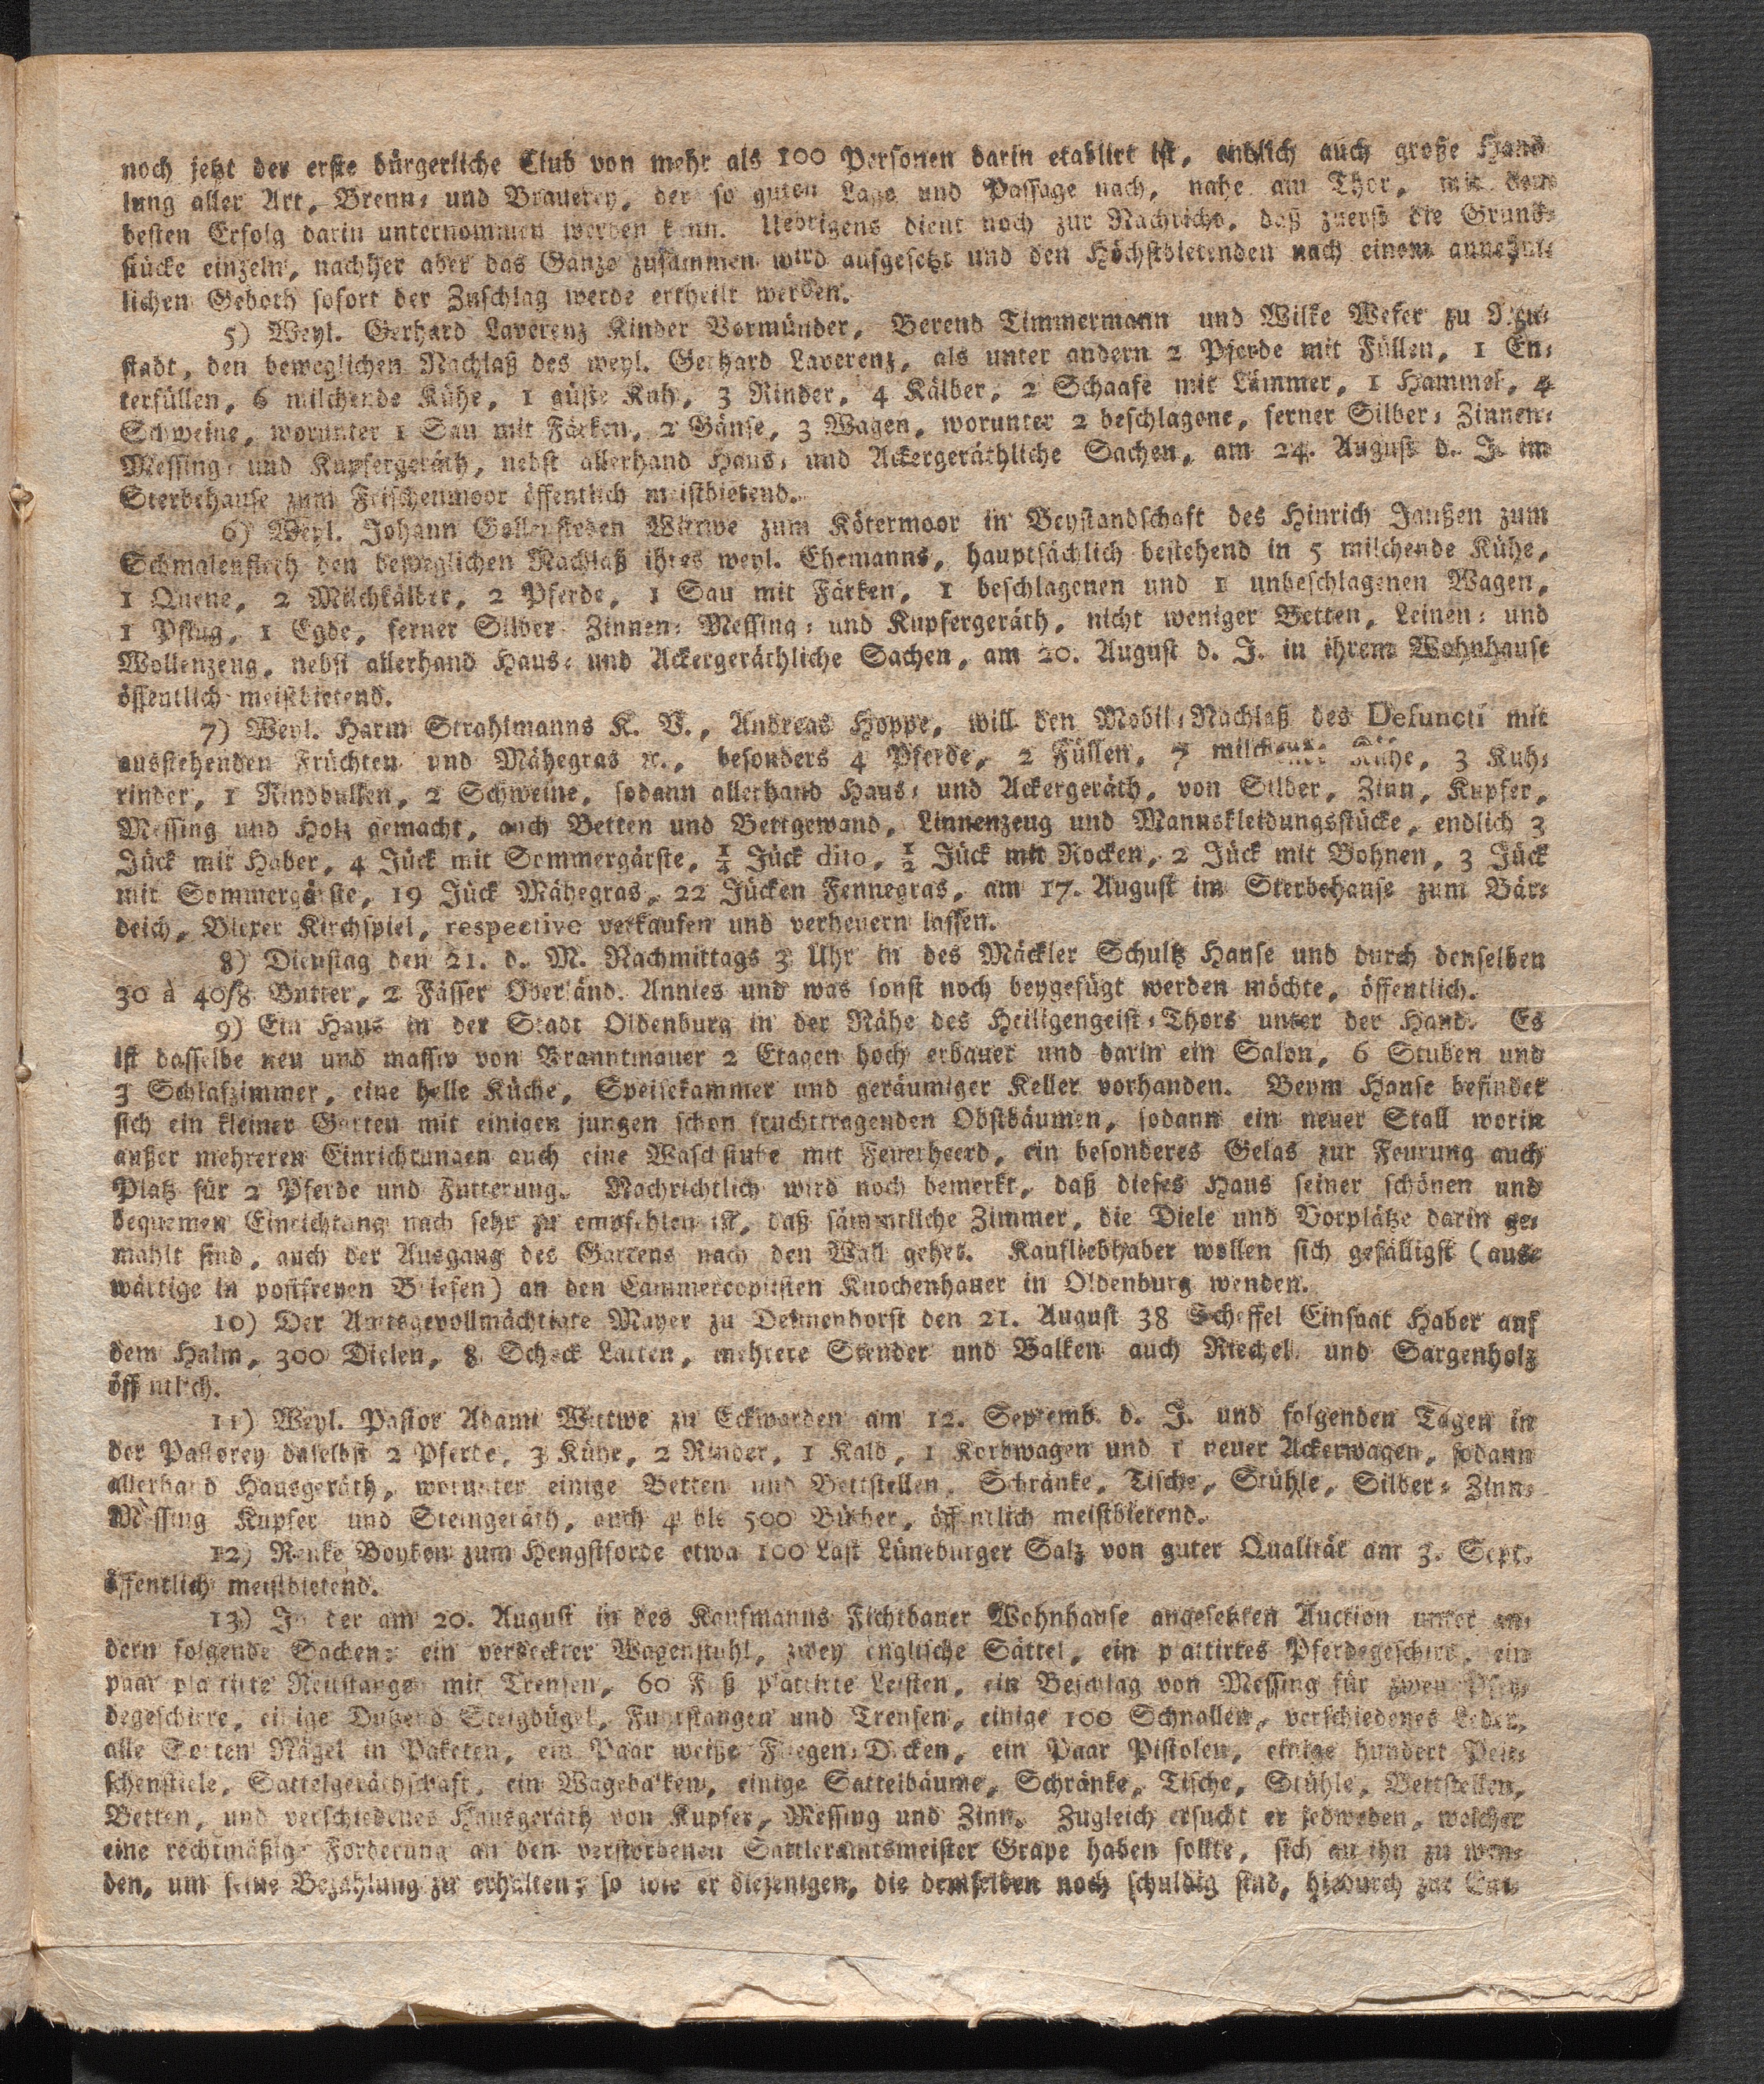 noch jetzt der erste bürgerliche Club von mehr als 100 Personen darin etablirt ist, endlich auch große Hand
lung aller Art, Brenn- und Brauerey, der so guten Lage und Passage nach, nahe am Thor, mit dem
besten Erfolg darin unternommen werden kann. Uebrigens dient noch zur Nachricht, daß zuerst die Grund-
stücke einzeln, nachher aber das Ganze zusammen wird aufgesetzt und den Höchstbietenden nach einem annehm-
lichen Geboth sofort der Zuschlag werde ertheilt werden.
5) Weyl. Gerhard Laverenz Kinder Vormünder, Berend Timmermann und Wilke Weser zu Neu-
stadt, den beweglichen Nachlaß des weyl. Gerhard Laverenz, als unter andern 2 Pferde mit Füllen, 1 En-
terfüllen, 6 milchende Kühe, 1 güste Kuh, 3 Rinder, 4 Kälber, 2 Schaafe mit Lämmer, 1 Hammel, 4
Schweine, worunter 1 Sau mit Färken, 2 Gänse, 3 Wagen, worunter 2 beschlagene, ferner Silber- Zinnen-
Messing- und Kupfergeräth, nebst allerhand Haus- und Ackergeräthliche Sachen, am 24. August d. J. im
Sterbehause zum Frischenmoor öffentlich meistbietend.
6) Weyl. Johann Gollensteden Wittwe zum Kötermoor in Beystandschaft des Hinrich Janßen zum
Schmalenfleth den beweglichen Nachlaß ihres weyl. Ehemanns, hauptsächlich bestehend in 5 milchende Kühe,
1 Quene, 2 Milchkälber, 2 Pferde, 1 Sau mit Färken, 1 beschlagenen und 1 unbeschlagenen Wagen,
1 Pflug, 1 Egde, ferner Silber- Zinnen- Messing- und Kupfergeräth, nicht weniger Betten, Leinen- und
Wollenzeug, nebst allerhand Haus- und Ackergeräthliche Sachen, am 20. August d. J. in ihrem Wohnhause
öffentlich meistbietend.
7) Weyl. Harm Strahlmanns K. V., Andreas Hoppe, will den Mobil-Nachlaß des Defuncti mit
ausstehenden Früchten und Mähegras ꝛc., besonders 4 Pferde, 2 Füllen, 7 milchende Kühe, 3 Kuh-
rinder, 1 Rindbullen, 2 Schweine, sodann allerhand Haus- und Ackergeräth, von Silber, Zinn, Kupfer,
Messing und Holz gemacht, auch Betten und Bettgewand, Linnenzeug und Mannskleidungsstücke, endlich 3
Jück mit Haber, 4 Jück mit Sommergärste, ½ Jück dito, ½ Jück mit Rocken, 2 Jück mit Bohnen, 3 Jück
mit Sommergärste, 19 Jück Mähegras, 22 Jücken Fennegras, am 17. August im Sterbehause zum Bär-
deich, Blexer Kirchspiel, respective verkaufen und verheuern lassen.
8) Dienstag den 21. d. M. Nachmittags 3 Uhr in des Mäckler Schultz Hause und durch denselben
30 à 40/8 Butter, 2 Fässer Oberländ. Annies und was sonst noch beygefügt werden möchte, öffentlich.
9) Ein Haus in der Stadt Oldenburg in der Nähe des Heiligengeist-Thors unter der Hand. Es
ist dasselbe neu und massiv von Branntmauer 2 Etagen hoch erbauet und darin ein Salon, 6 Stuben und
3 Schlafzimmer, eine helle Küche, Speisekammer und geräumiger Keller vorhanden. Beym Hause befindet
sich ein kleiner Garten mit einigen jungen schon fruchttragenden Obstbäumen, sodann ein neuer Stall worin
außer mehreren Einrichtungen auch eine Waschstube mit Feuerheerd, ein besonderes Gelas zur Feurung auch
Platz für 2 Pferde und Futterung. Nachrichtlich wird noch bemerkt, daß dieses Haus seiner schönen und
bequemen Einrichtung nach sehr zu empfehlen ist, daß sämmtliche Zimmer, die Diele und Vorplätze darin ge-
mahlt sind, auch der Ausgang des Gartens nach den Wall gehet. Kaufliebhaber wollen sich gefälligst (aus-
wärtige in postfreyen Briefen) an den Cammercopiisten Knochenhauer in Oldenburg wenden.
10) Der Amtsgevollmächtigte Mayer zu Delmenhorst den 21. August 38 Scheffel Einsaat Haber auf
dem Halm, 300 Dielen, 8 Schock Latten, mehrere Stender und Balken auch Riechel- und Sargenholz
öffentlich.
11) Weyl. Pastor Adami Wittwe zu Eckwarden am 12. Septemb. d. J. und folgenden Tagen in
der Pastorey daselbst 2 Pferde, 3 Kühe, 2 Rinder, 1 Kalb, 1 Korbwagen und 1 neuer Ackerwagen, sodann
allerhand Hausgeräth, worunter einige Betten und Bettstellen, Schränke, Tische, Stühle, Silber- Zinn-
Messing Kupfer und Steingeräth, auch 4 bis 500 Bücher, öffentlich meistbietend.
12) Renke Boyken zum Hengstforde etwa 100 Last Lüneburger Salz von guter Qualität am 3. Sept.
öffentlich meistbietend.
13) In der am 20. August in des Kaufmanns Fichtbauer Wohnhause angesetzten Auction unter an-
dern folgende Sachen: ein verdeckter Wagenstuhl, zwey englische Sättel, ein plattirtes Pferdegeschirr, ein
paar plattirte Reitstangen mit Trensen, 60 Fuß plattirte Leisten, ein Beschlag von Messing für zwey Pfer-
degeschirre, einige Dutzend Steigbügel, Fuhrstangen und Trensen, einige 100 Schnallen, verschiedenes Leder,
alle Sorten Nägel in Paketen, ein Paar weiße Fliegen-Decken, ein Paar Pistolen, einige hundert Peit-
schenstiele, Sattelgeräthschaft, ein Wagebalken, einige Sattelbäume, Schränke, Tische, Stühle, Bettstellen,
Betten, und verschiedenes Hausgeräth von Kupfer, Messing und Zinn. Zugleich ersucht er jedweden, welcher
eine rechtmäßige Forderung an den verstorbenen Sattleramtsmeister Grape haben sollte, sich an ihn zu wen-
den, um seine Bezahlung zu erhalten; so wie er diejenigen, die demselben noch schuldig sind, hiedurch zur